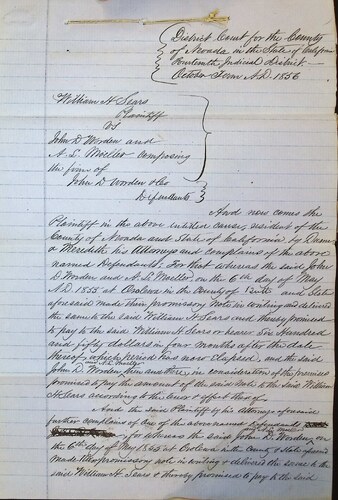 District Court for the County
of Nevada in the State of California
Fourteenth Judicial District
October Term A.D. 1856
William H Sears
Plaintiff
vs
John D Worden and
A. L. Moeller composing
the firm of
John D Worden & Co
Defendants
And now comes the
Plaintiff in the above entitled cause, resident of the
County of Nevada and State of California by
& Meredith his Attorneys and complains of the above
named Defendants. For that whereas the said John
D Worden and A. L. Moeller, on the 6th day of May
A.D. 1855 at in the County of and State
aforesaid made their promissory note in writing and delivered
the same to the said William H Sears and thereby promised
to pay to the said William H Sears or bearer Six Hundred
and fifty dollars in four months after the date
thereof, which period has now elapsed, and the said
John D. Worden, then and there, in consideration of the premises
promised to pay the amount of the said note to the said William
H Sears according to the tenor & effect thereof
And the said Plaintiff by his attorneys aforesaid
further complains of the above named Defendants
for whereas the said John D. Worden, on
the 6th day of May 1855 at in the County & State aforesaid
made promissory note in writing & delivered the same to the
said William H. Sears & thereby promised to pay to the said